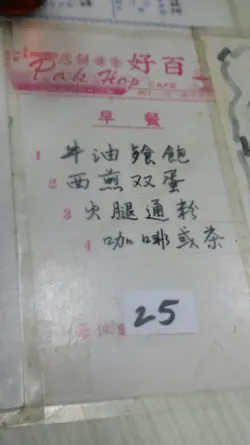 百好
Pak Hop
CAFE
早餐
1 牛油餐飽
2 西煎双蛋
3 火腿通粉
4 咖啡或茶
25